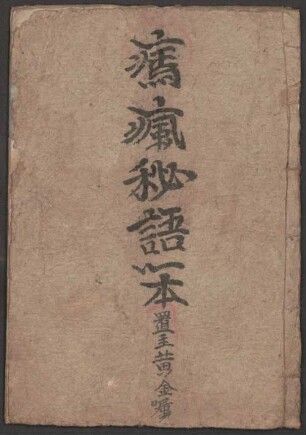 瘋秘語一本
置主黄金